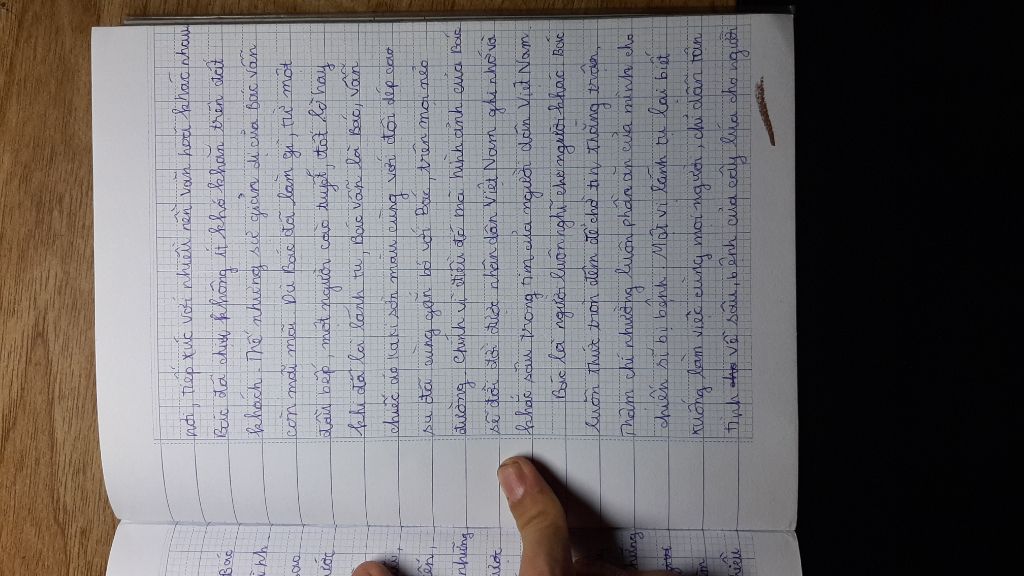 Bác
những
nơi, tiếp xúc với nhiều nền văn hoá khác nhau
Bác đã chịu không ít khó khăn trên đất
khách. Thế nhưng sự giản dị của Bác vẫn
còn mãi mãi. Dù Bác đã làm gì, từ một
đầu bếp, một người cào tuyết, đốt lò hay
khi đã là lãnh tụ, Bác vẫn là Bác, vẫn
chiếc áo kaki sờn màu cùng với đôi dép cao
su đã cùng gắn bó với Bác, trên mọi nẻo
đường. Chính vì điều đó mà hình ảnh của Bác
sẽ đời đời được nhân dân Việt Nam ghi nhớ và
khắc sâu trong tim của người dân Việt Nam
Bác là người luôn nghĩ cho người khác. Bác
luôn thức trọn đêm để chờ tin thắng trận,
Thậm chí nhường luôn phần ăn của mình cho
chiến sĩ bị bệnh. Một vị lãnh tụ lại biết
xuống làm việc cùng mọi người, chỉ dẫn tận
tình về sâu, bệnh của cây lúa cho người